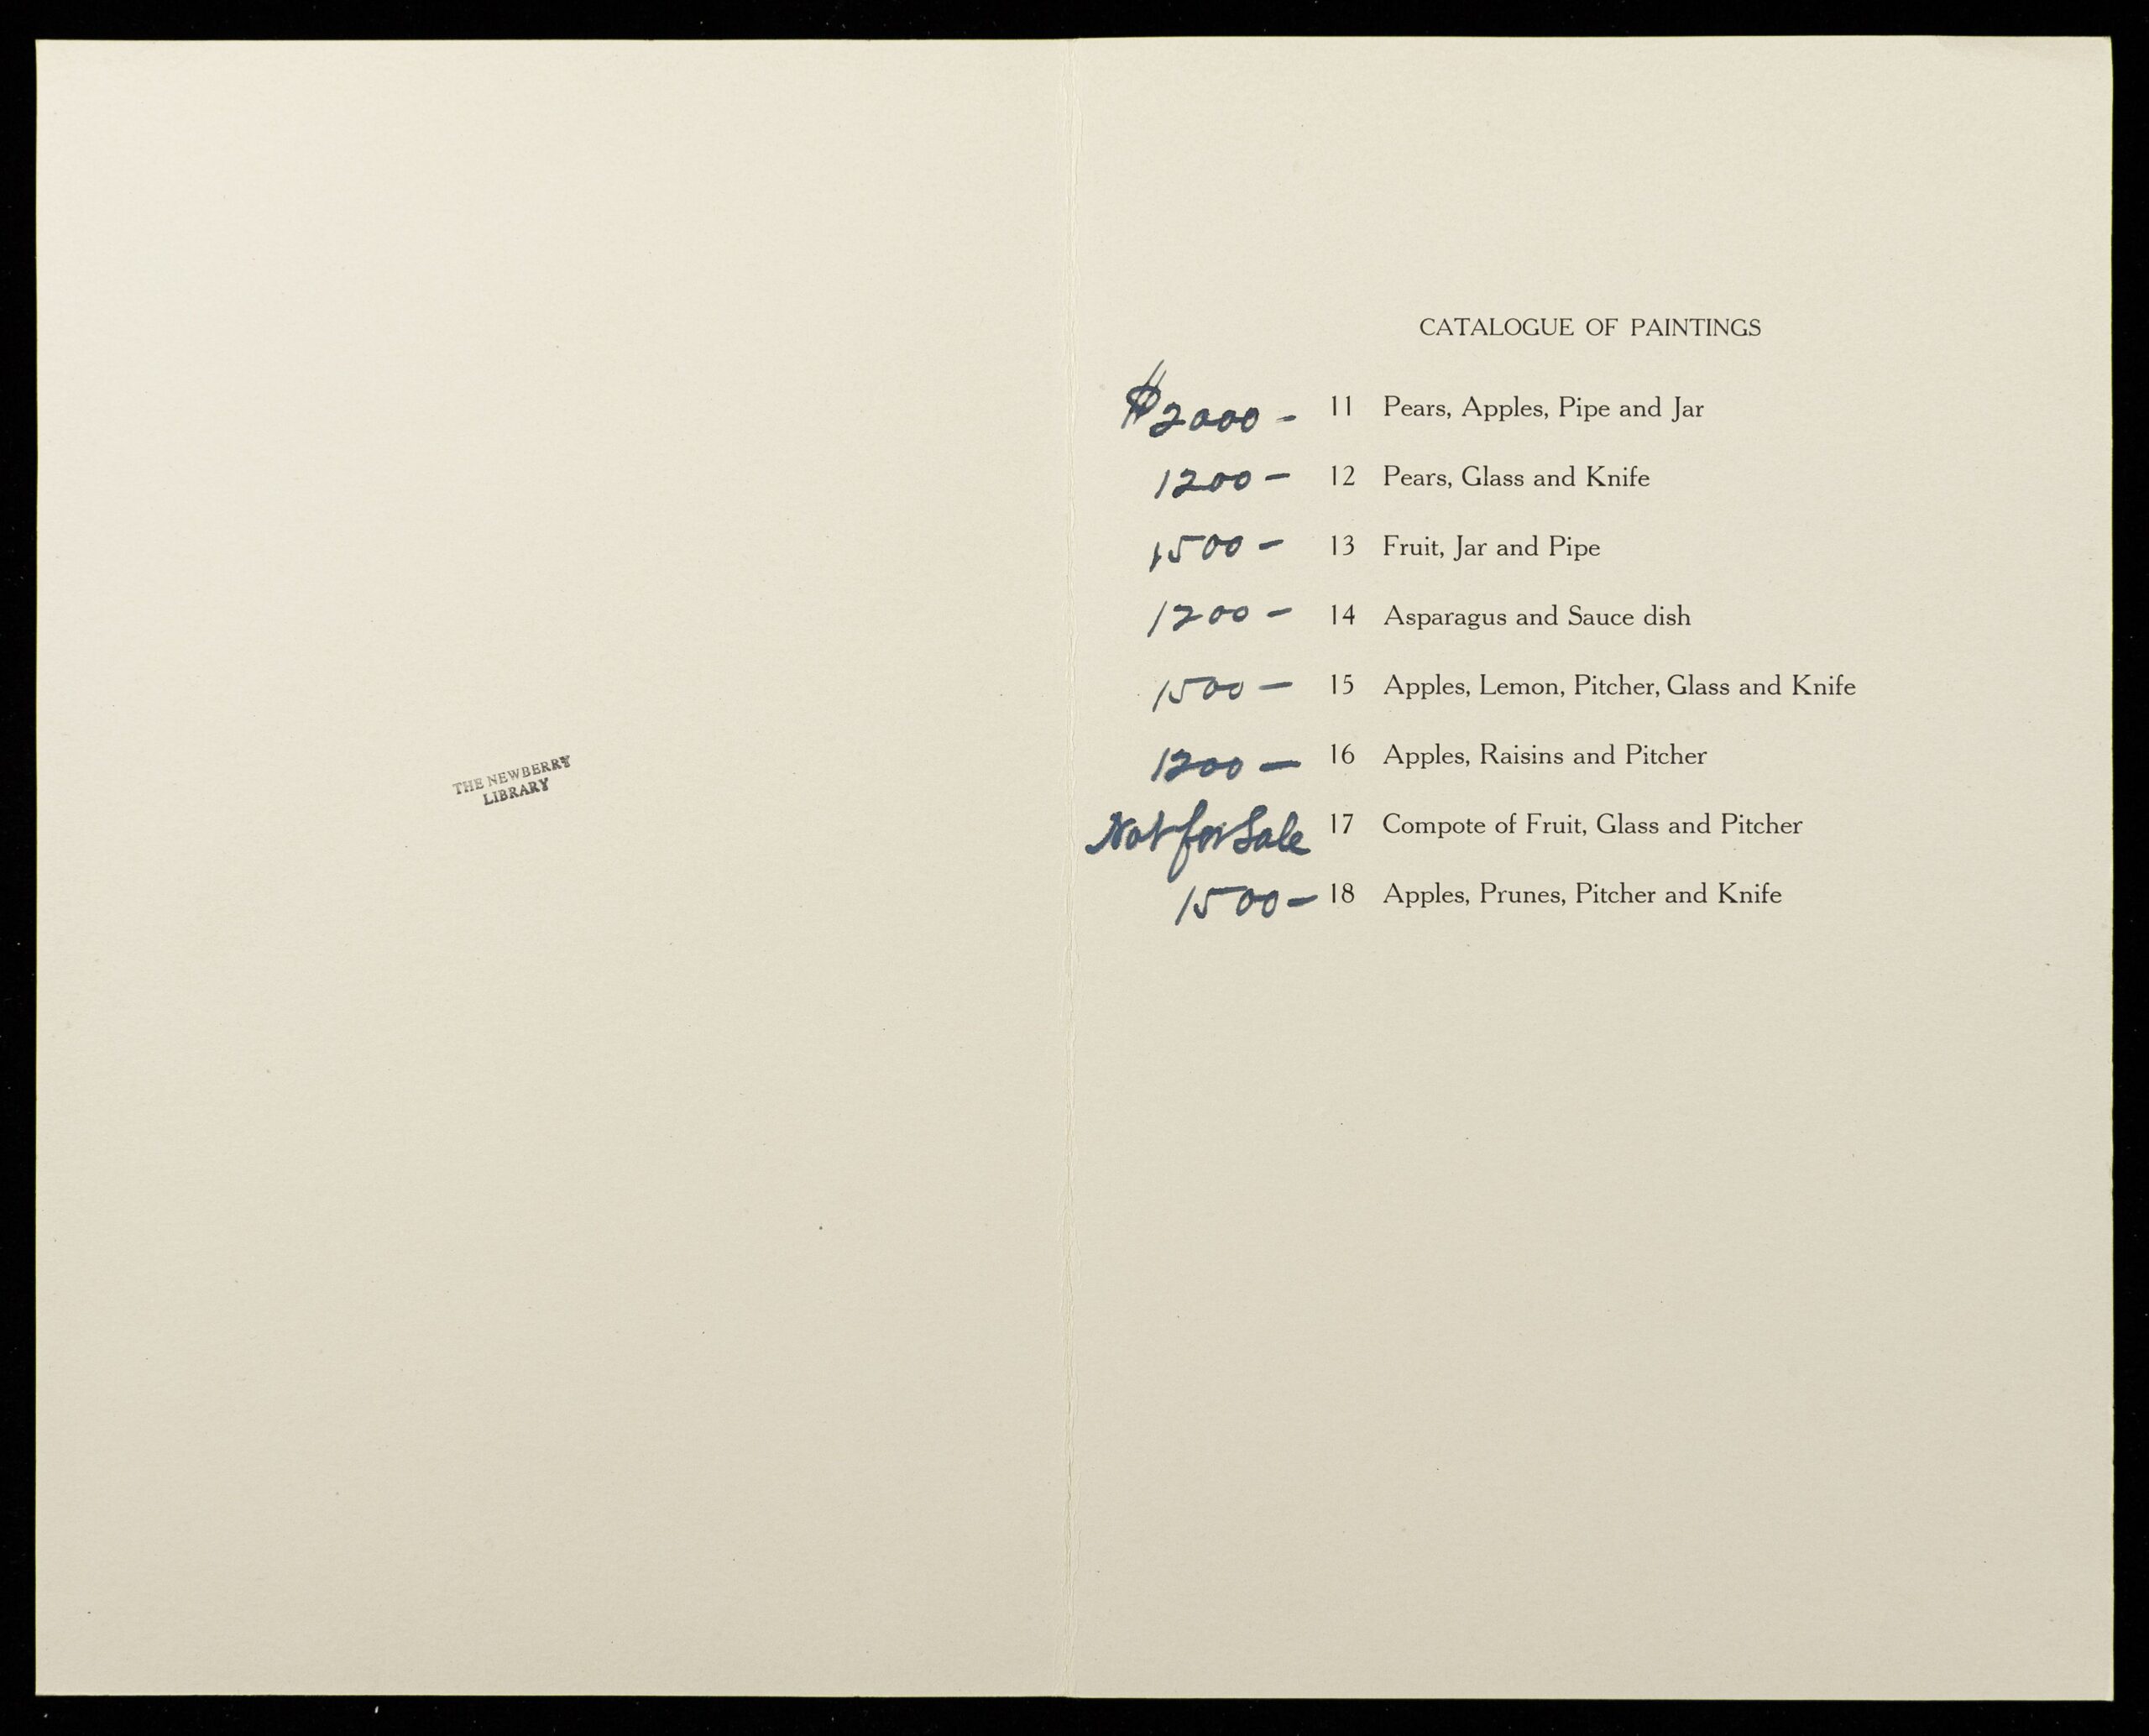 THE NEWBERRY
LIBRARY
CATALOGUE OF PAINTINGS
$2000 - 11 Pears, Apples, Pipe and Jar
1200 - 12 Pears, Glass and Knife
1500 - 13 Fruit, Jar and Pipe
1200 - 14 Asparagus and Sauce dish
1500 - 15 Apples, Lemon, Pitcher, Glass and Knife
1200 - 16 Apples, Raisins and Pitcher
Not for Sale 17 Compote of Fruit, Glass and Pitcher
1500 - 18 Apples, Prunes, Pitcher and Knife